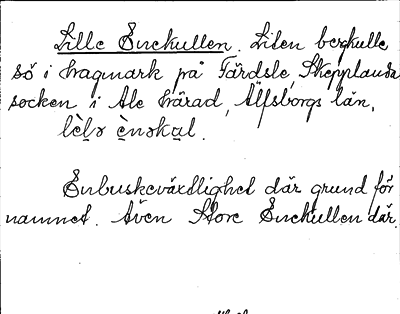 Lille Enekullen. Liten bergkulle
så i hagmark på Färdsle, Skepplanda
socken i Ale härad, Älfsborgs län.
lèlə ènəkal.
Enbuskeväxtlighet där grund för
namnet. Även Store Enekullen där.